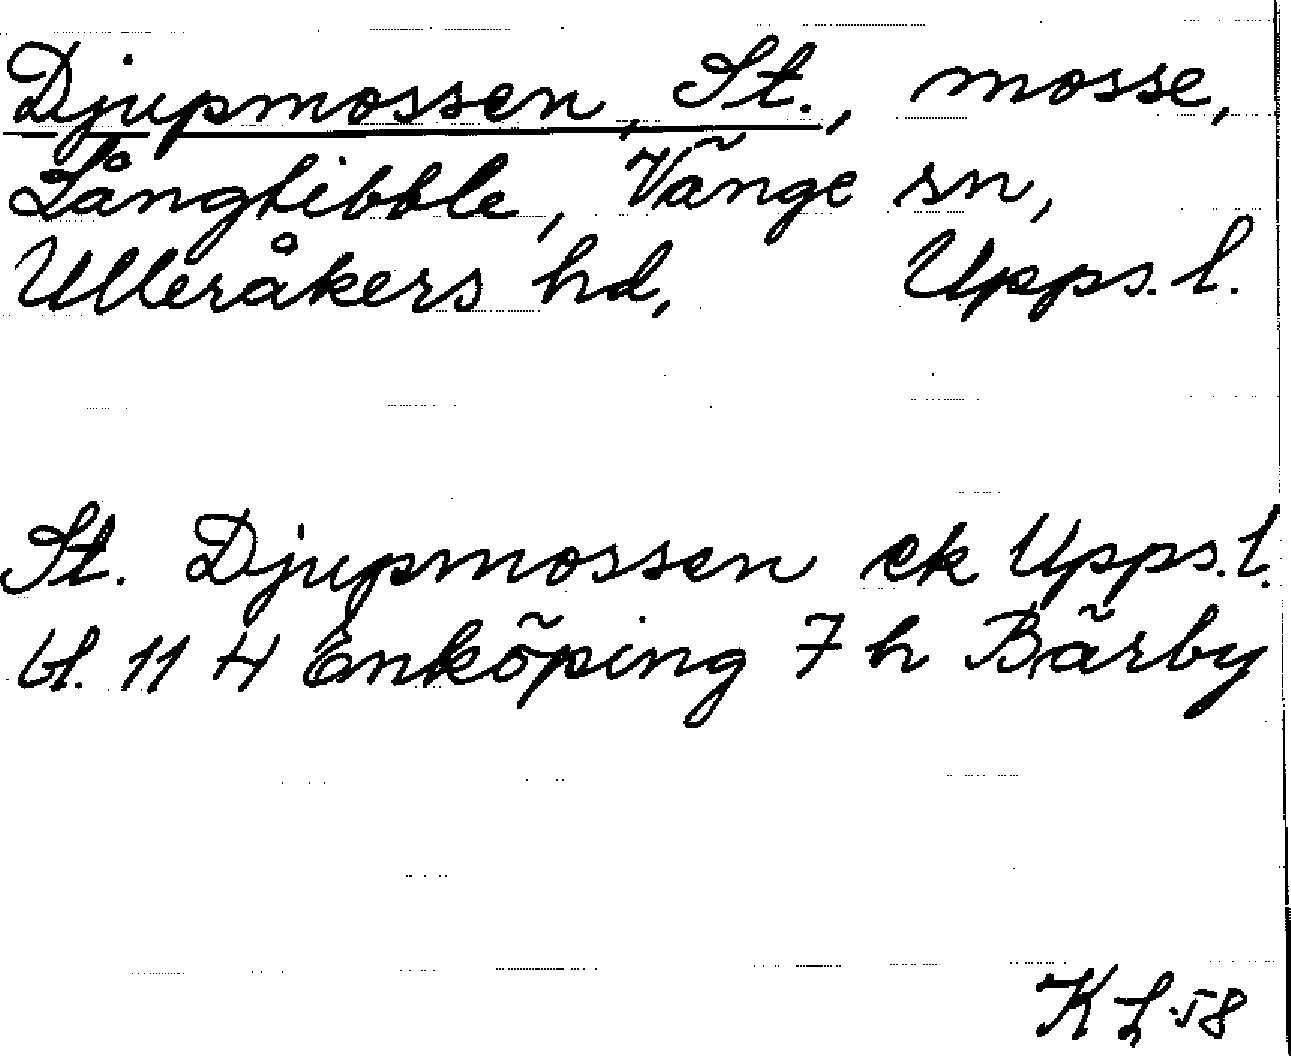 Djupmossen, St., mosse,
Långtibble, Vänge sn,
Ulleråkers hd, Upps. l.
St. Djupmossen ek Upps. l.
bl. 11 H Enköping 7 h Bärby
KL 58